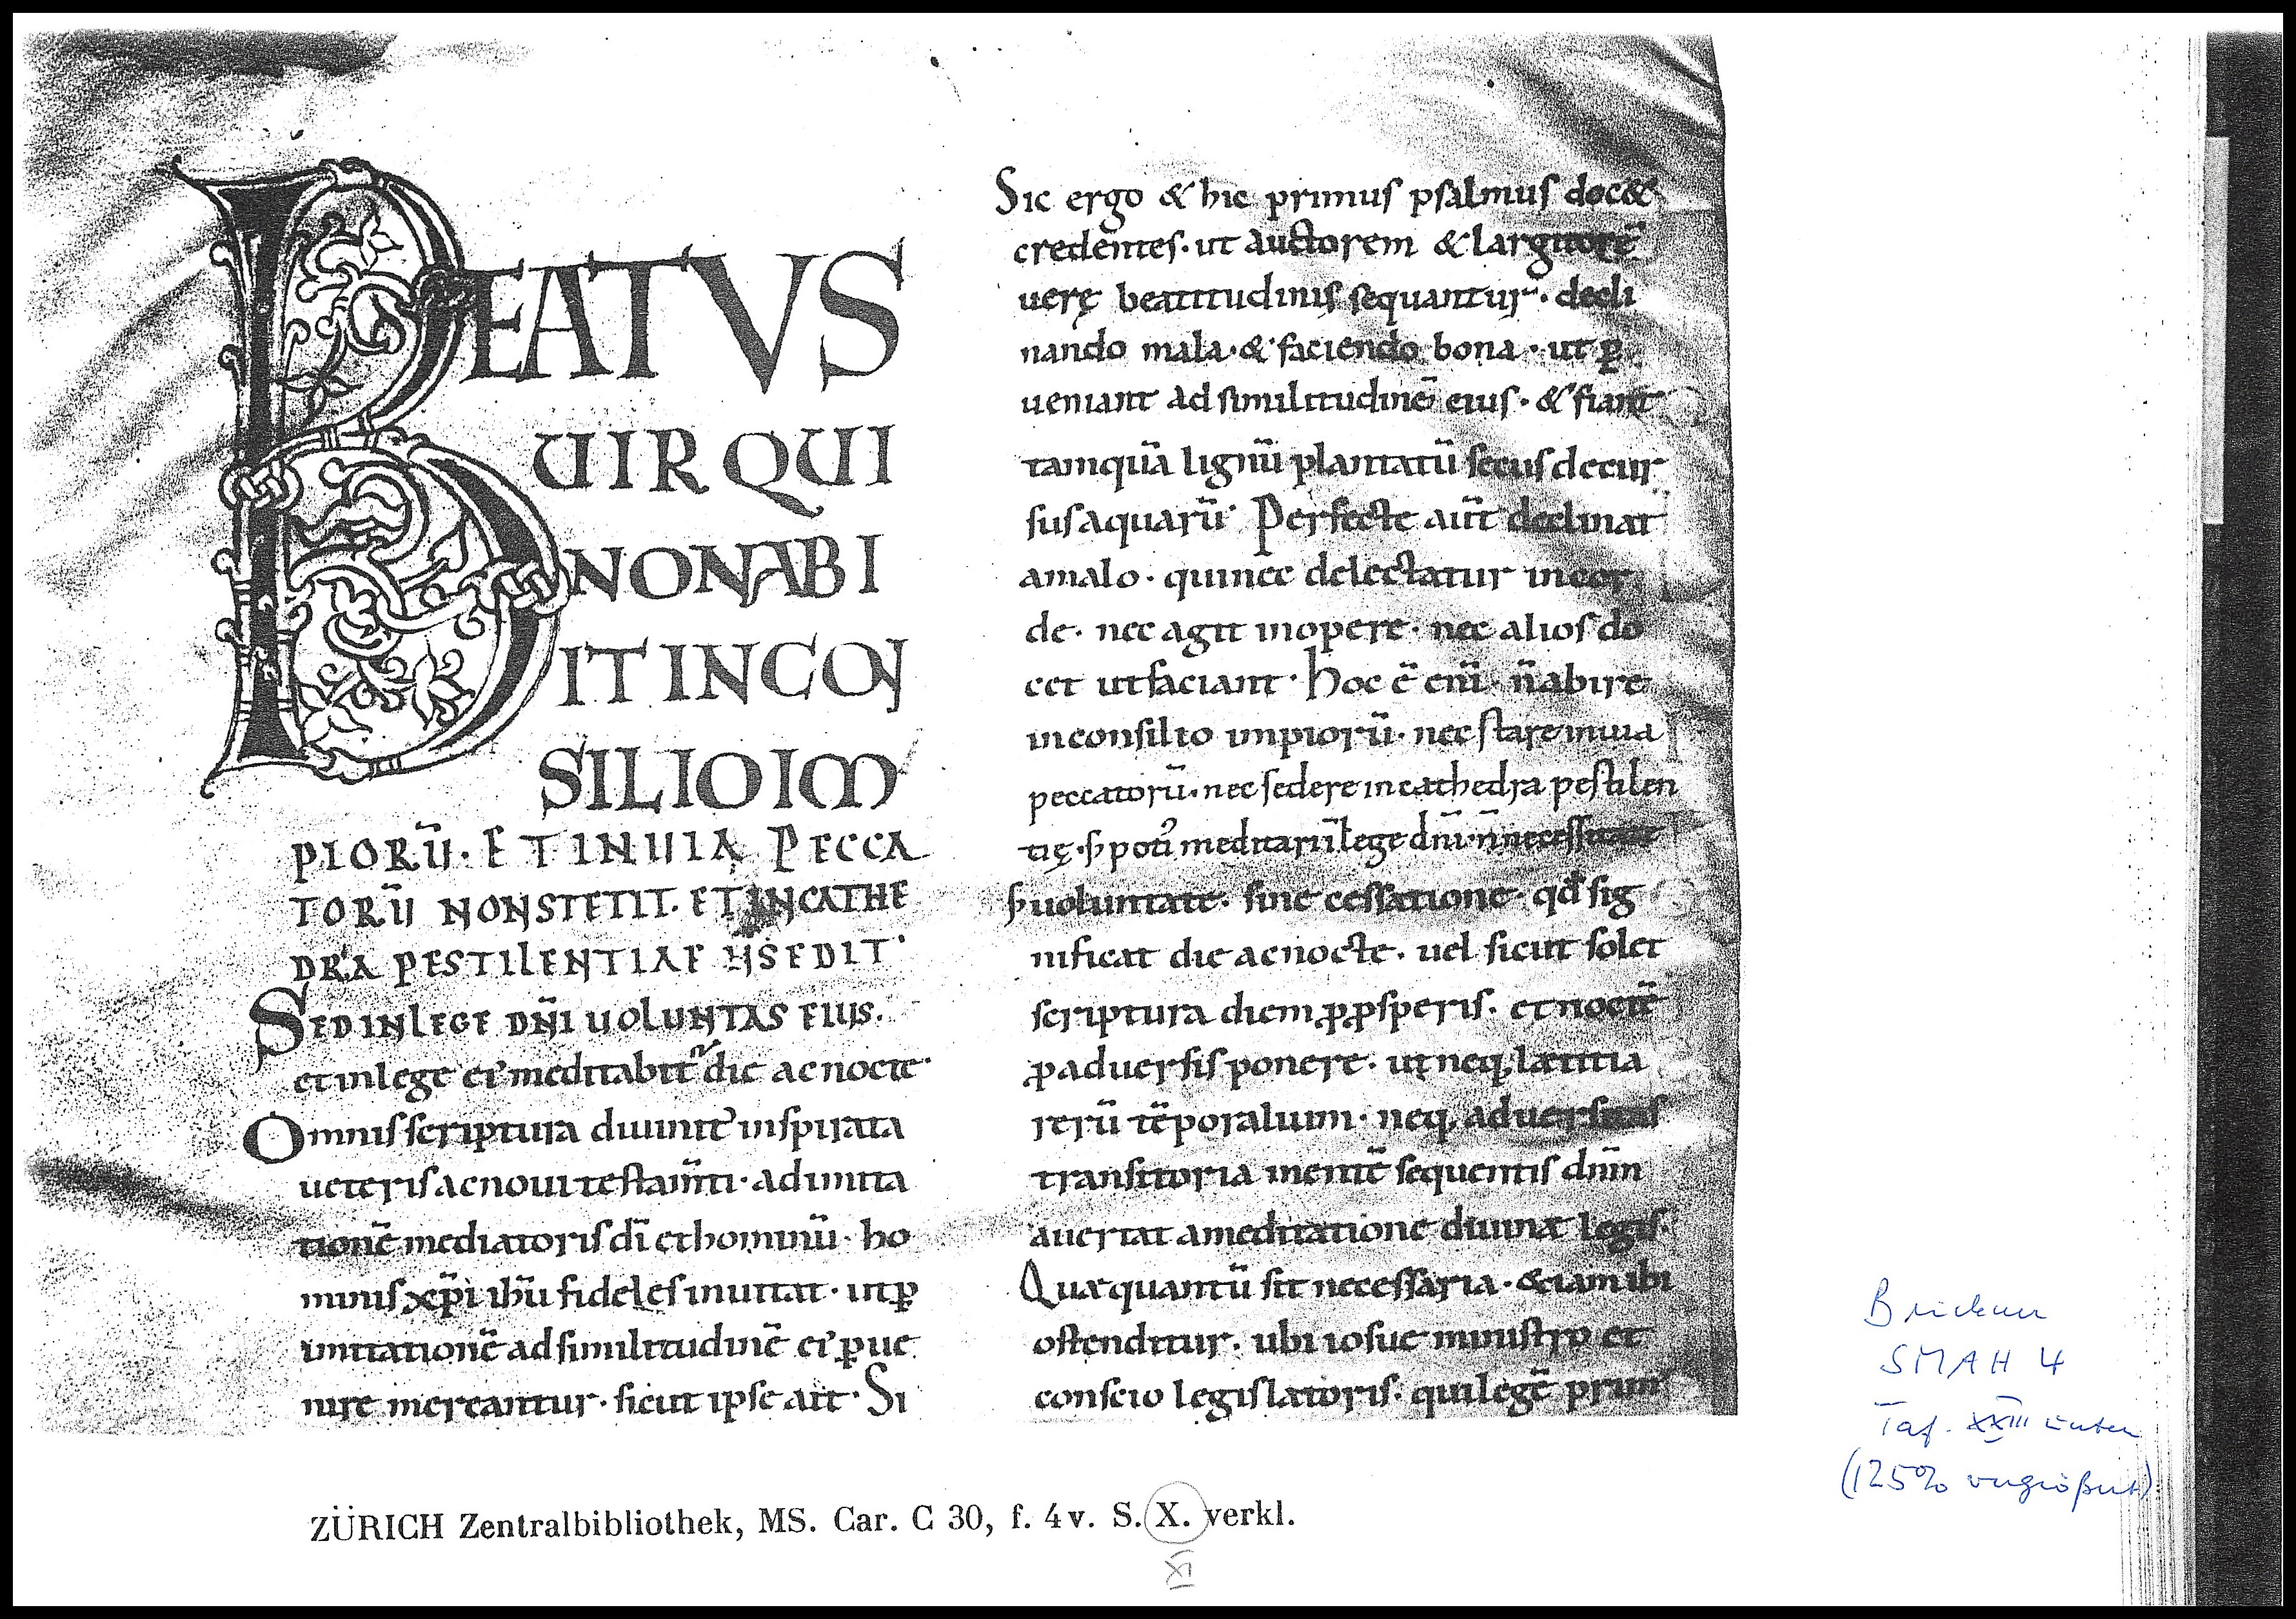 BEATVS
UIR QUI
NON ABI
IT IN CON
SILIO IM
PIORŪ· ET IN UIA PECCA
TORŪ NON STETIT· ET IN CATHE
DRA PESTILENTIAE N̄ SEDIT·
SED IN LEGE DN̄I UOLUNTAS EIUS·
et in lege ei᾽ meditabit᷑ die ac nocte·
Omnis scriptura diuinit᾽ inspirata
ueteris ac noui testam̄ti· ad imita
tionē mediatoris dī et hominū· ho
minis xp̄i ih̄u fideles inuitat· ut ꝑ
imitationē ad similitudinē ei᾽ ꝑue
nire mereantur· sicut ipse ait· Si
Sic ergo & hic primus psalmus doc&
credentes· ut auctorem & largitorē
uerę beatitudinis sequantur· decli
nando mala· & faciendo bona· ut ꝑ
ueniant ad similitudinē eius· & fiant
tamquā lignū plantatū secus decur
sus aquarū· Perfecte aūt declinat
a malo· qui nec delectatur in cor
de· nec agit in opere· nec alios do
cet ut faciant· hoc ē enī· n̄ abire
in consilio impiorū· nec stare in uia
peccatorū· nec sedere in cathedra pestilen
tię· ẜ poti᾽ meditari ī lege dn̄i· n̄ necessitate
ẜ uoluntate· sine cessatione· qđ sig
nificat die ac nocte· uel sicut solet
scriptura diem ꝓ ꝓsperis· et noctē
ꝓ aduersis ponere· ut neq; lætitia
rerū tēporalium· neq; aduersitas
transitoria mentē sequentis dn̄m
auertat a meditatione diuinæ legis·
Quæ quantū sit necessaria· &iam ibi
ostenditur· ubi iosue ministro et
conscio legislatoris· qui legē prim᾽
ZÜRICH Zentralbibliothek, MS. Car. C 30, f. 4v. S. X. verkl.
IX
Bruckner
SMAH 4
Taf. XXIII unten
(125% vergrößert)